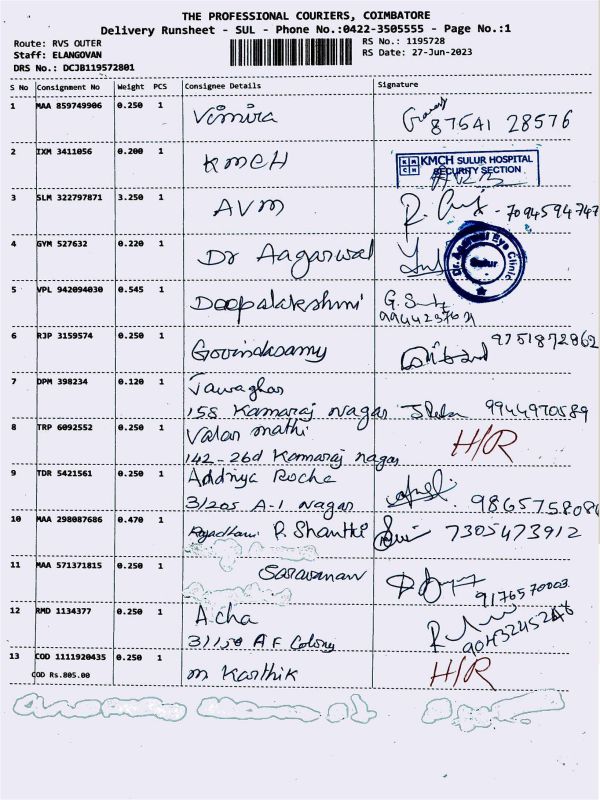 THE PROFESSIONAL COURIERS, COIMBATORE
Delivery Runsheet - SUL - Phone No.:0422-3505555 - Page No.:1
Route: RVS OUTER
Staff: ELANGOVAN
DRS No.: DCJB119572801
RS No.: 1195728
RS Date: 27-Jun-2023
S No Consignment No Weight PCS Consignee Details Signature
1 MAA 859749906 0.250 1 Vimira
87541 28576
2 IXM 3411056 0.200 1 KMCH
KMCH SULUR HOSPITAL
SECURITY SECTION
3 SLM 322797871 3.250 1 AVM
7094594747
4 GYM 527632 0.220 1 Dr Aagarwal
Dr. Agarwal Eye Clinic
Sulur
5 VPL 942094030 0.545 1 Deepalakshmi
6 RJP 3159574 0.250 1 Govindasamy
9751872862
7 DPM 398234 0.120 1
158 Kamaraj nagar 9944970589
8 TRP 6092552 0.250 1 Valar mathi H/R
142-26d Kamaraj nagar
9 TDR 5421561 0.250 1
3/205 A-1 Nagar 9865758086
10 MAA 298087686 0.470 1 P. Shanthi 7305473912
11 MAA 571371815 0.250 1 Saravanan
9176570003
12 RMD 1134377 0.250 1 Acha
3/150 A F Colony 9043245246
13 COD 1111920435 0.250 1 m Karthik H/R
COD Rs.805.00